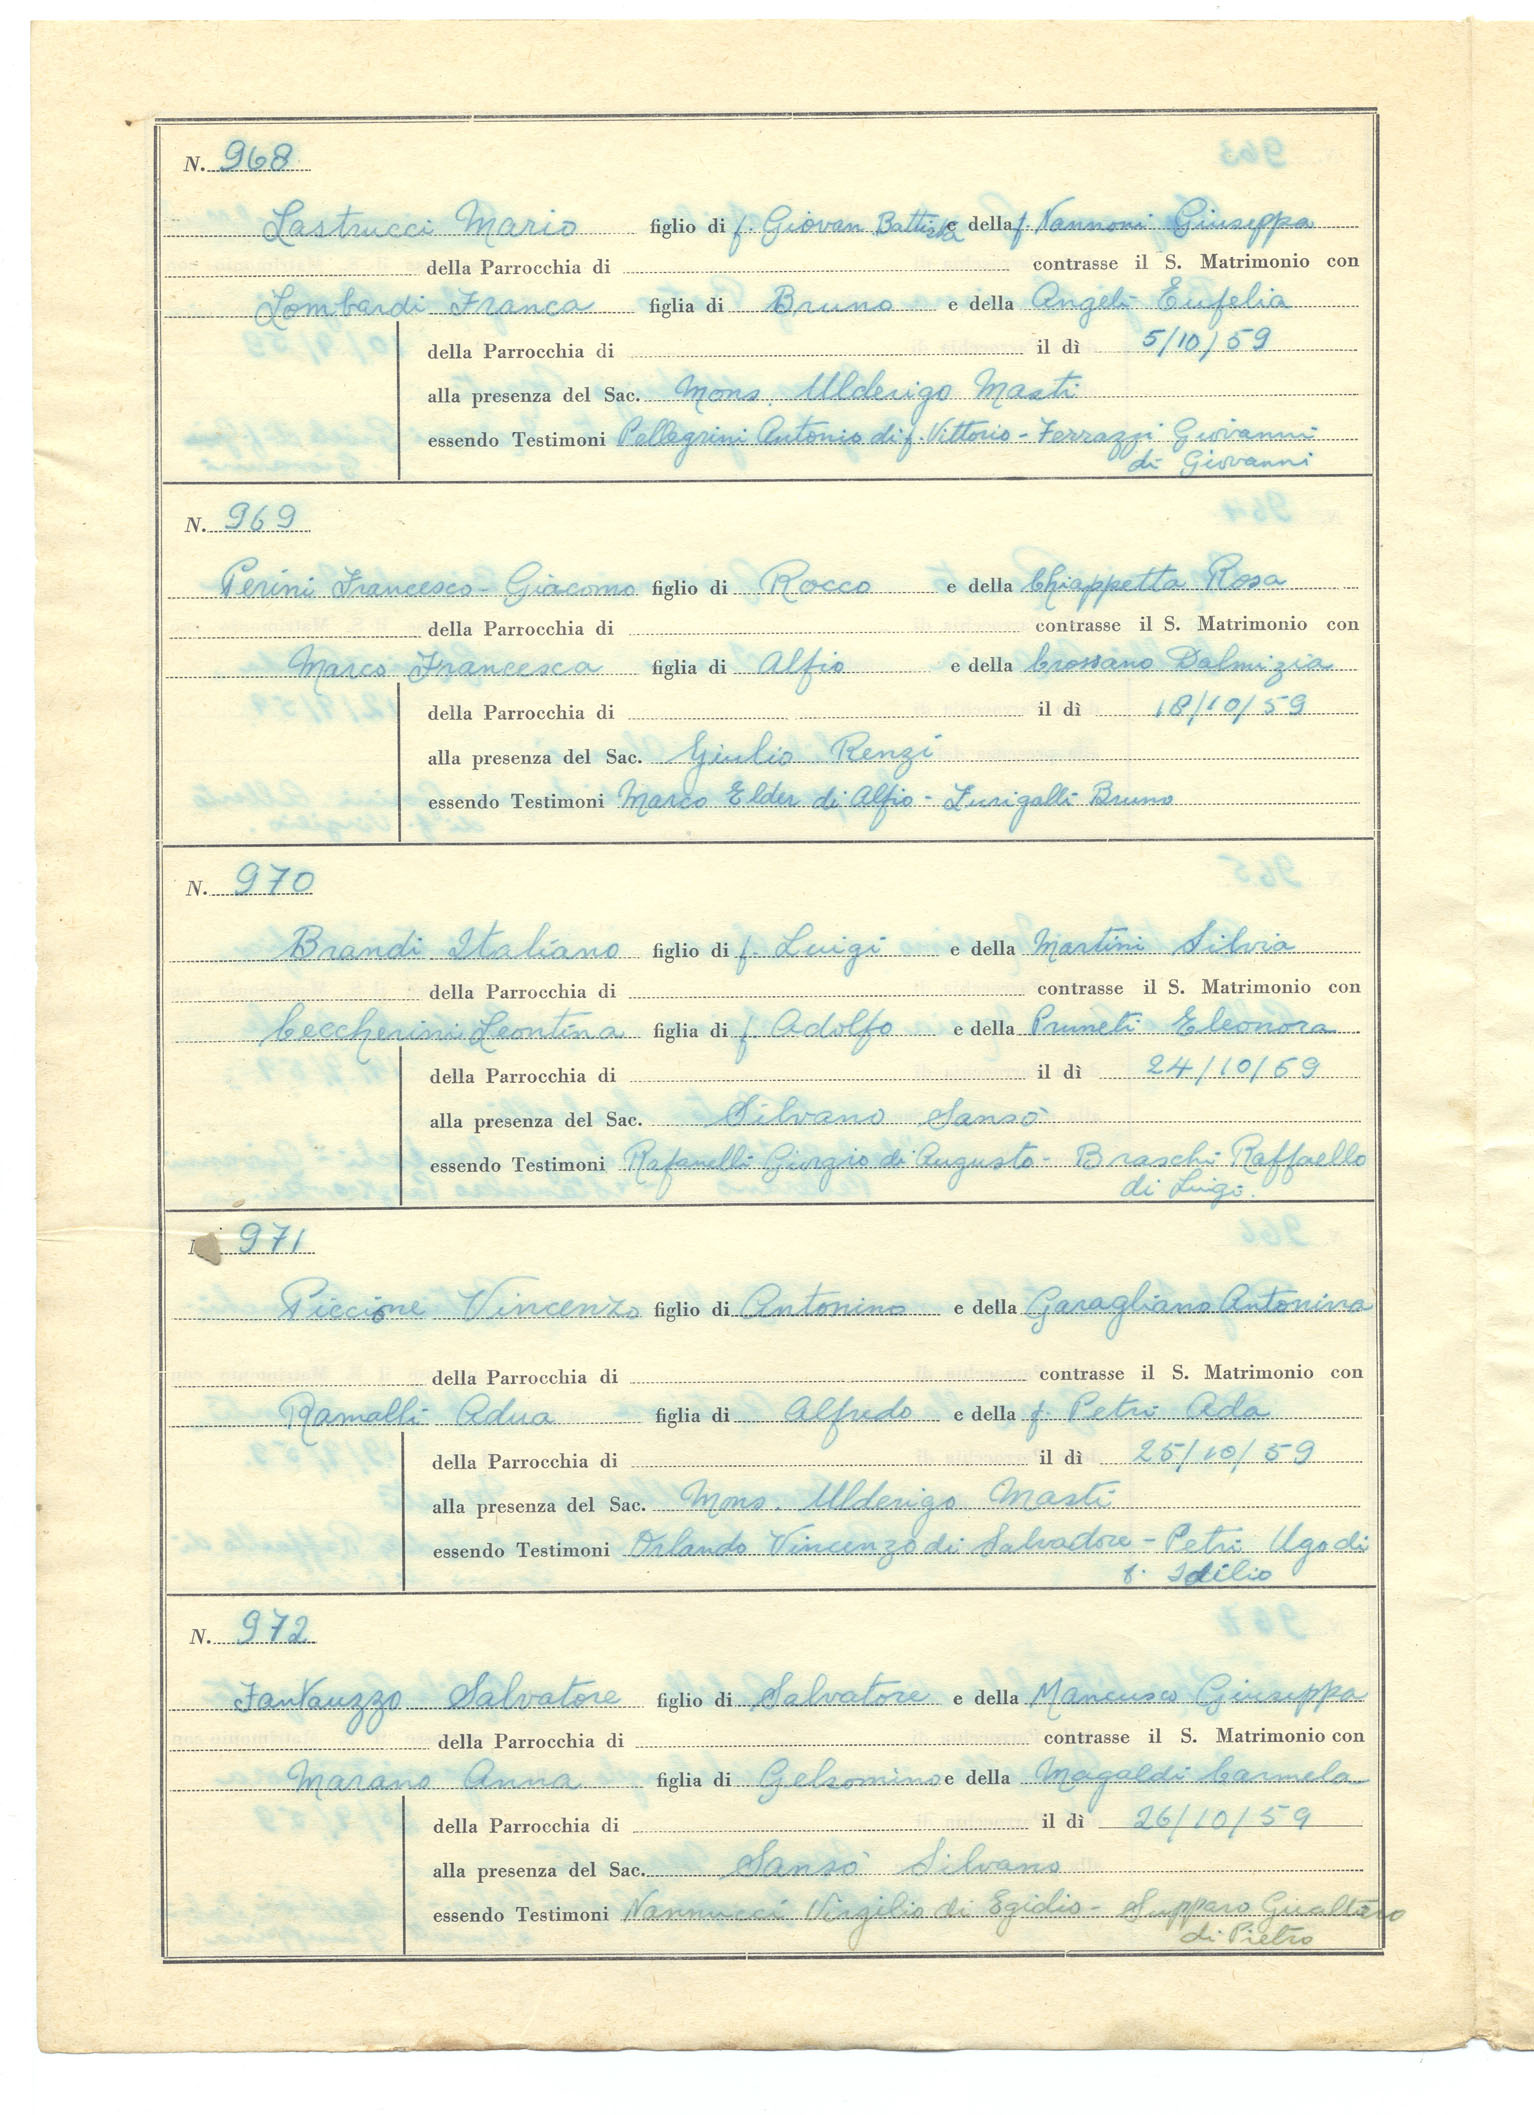 N. 968
Lastrucci Mario figlio di f. Giovan Battista e della f. Nannoni Giuseppa
della Parrocchia di contrasse il S. Matrimonio con
Lombardi Franca figlia di Bruno e della Angeli Eufelia
della Parrocchia di il dì 5/10/59
alla presenza del Sac. Mons. Ulderigo Masti
essendo Testimoni Pellegrini Antonio di f. Vittorio - Ferrazzi Giovanni
di Giovanni
N. 969
Perini Francesco - Giacomo figlio di Rocco e della Chiappetta Rosa
della Parrocchia di contrasse il S. Matrimonio con
Marco Francesca figlia di Alfio e della Crossano Dalmizia
della Parrocchia di il dì 18/10/59
alla presenza del Sac. Giulio Renzi
essendo Testimoni Marco Elder di Alfio - Bruno
N. 970
Brandi Italiano figlio di f. Luigi e della Martini Silvia
della Parrocchia di contrasse il S. Matrimonio con
Ceccherini Leontina figlia di f. Adolfo e della Pruneti Eleonora
della Parrocchia di il dì 24/10/59
alla presenza del Sac. Silvano Sansò
essendo Testimoni Rafanelli Giorgio di Augusto - Braschi Raffaello
di Luigi.
971
Piccione Vincenzo figlio di Antonino e della Garagliano Antonina
della Parrocchia di contrasse il S. Matrimonio con
Ramalli Adua figlia di Alfredo e della f. Petri Ada
della Parrocchia di il dì 25/10/59
alla presenza del Sac. Mons. Ulderigo Masti
essendo Testimoni Orlando Vincenzo di Salvadore - Petri Ugo di
f. Idilio
N. 972
Fantauzzo Salvatore figlio di Salvatore e della Mancuso Giuseppa
della Parrocchia di contrasse il S. Matrimonio con
Marano Anna figlia di Gelsomino e della Magaldi Carmela
della Parrocchia di il dì 26/10/59
alla presenza del Sac. Sansò Silvano
essendo Testimoni Nannucci Virgilio di Egidio - Supparo Gualtiero
di Pietro